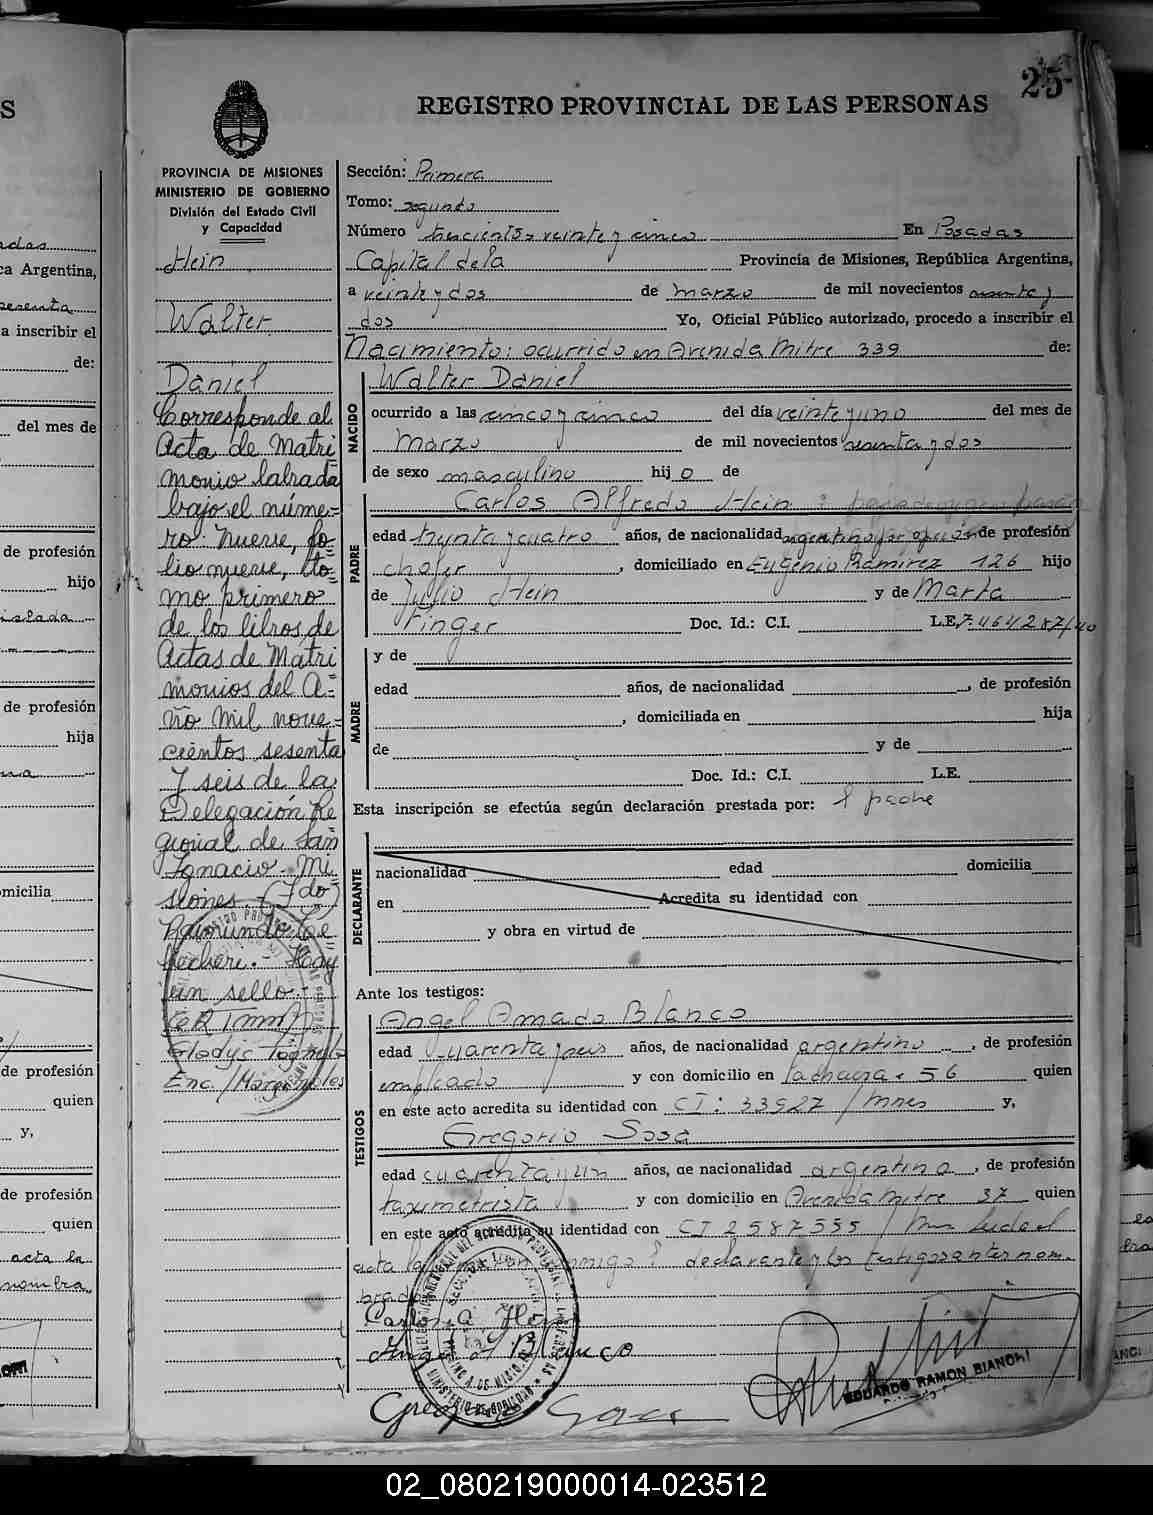 S
25
REGISTRO PROVINCIAL DE LAS PERSONAS
PROVINCIA DE MISIONES
MINISTERIO DE GOBIERNO
División del Estado Civil
y Capacidad
Hein
Walter
Daniel
Corresponde al
Acta de Matri
monio labrada
bajo el núme=
ro nueve, fo=
lio nueve, to=
mo primero
de los libros de
Actas de Matri
monios del A=
ño mil nove=
cientos sesenta
y seis de la
Delegación Re
gional de San
Ignacio. Mi=
siones. (Fdo)
Raimundo
Hay
un sello.-
Sección: Primera
Tomo: segundo
Número trescientos veinte y cinco En Posadas
Capital de la Provincia de Misiones, República Argentina,
a veinte y dos de marzo de mil novecientos sesenta y
dos Yo, Oficial Público autorizado, procedo a inscribir el
Nacimiento: ocurrido en Avenida Mitre 339 de:
NACIDO
Walter Daniel
ocurrido a las cinco y cinco del día veinte y uno del mes de
Marzo de mil novecientos sesenta y dos
de sexo masculino hijo de
PADRE
Carlos Alfredo Hein
edad treinta y cuatro años, de nacionalidad argentino por opción de profesión
chofer, domiciliado en Eugenio Ramirez 126 hijo
de Julio Hein y de Marta
Finger Doc. Id.: C.I. L.E. 7.464.287/40
MADRE
y de
edad años, de nacionalidad , de profesión
, domiciliada en hija
de y de
Doc. Id.: C.I. L.E.
Esta inscripción se efectúa según declaración prestada por: el padre
DECLARANTE
nacionalidad edad domicilia
en Acredita su identidad con
y obra en virtud de
Ante los testigos:
TESTIGOS
Angel Amado Blanco
edad cuarenta y seis años, de nacionalidad argentino, de profesión
empleado y con domicilio en 56 quien
en este acto acredita su identidad con CI: 33927/Mnes y,
Gregorio Sosa
edad cuarenta y un años, de nacionalidad argentino, de profesión
taximetrista y con domicilio en Avenida Mitre 37 quien
en este acto acredita su identidad con CI 2587555/Mns Leida el
acta la declarante y los testigos antes nom-
brados
Carlos A Hein
Angel A Blanco
EDUARDO RAMON BIANCHI
ca Argentina,
a inscribir el
de:
del mes de
de profesión
hijo
de profesión
hija
omicilia
de profesión
quien
y,
de profesión
quien
acta la
nombra
02_080219000014-023512